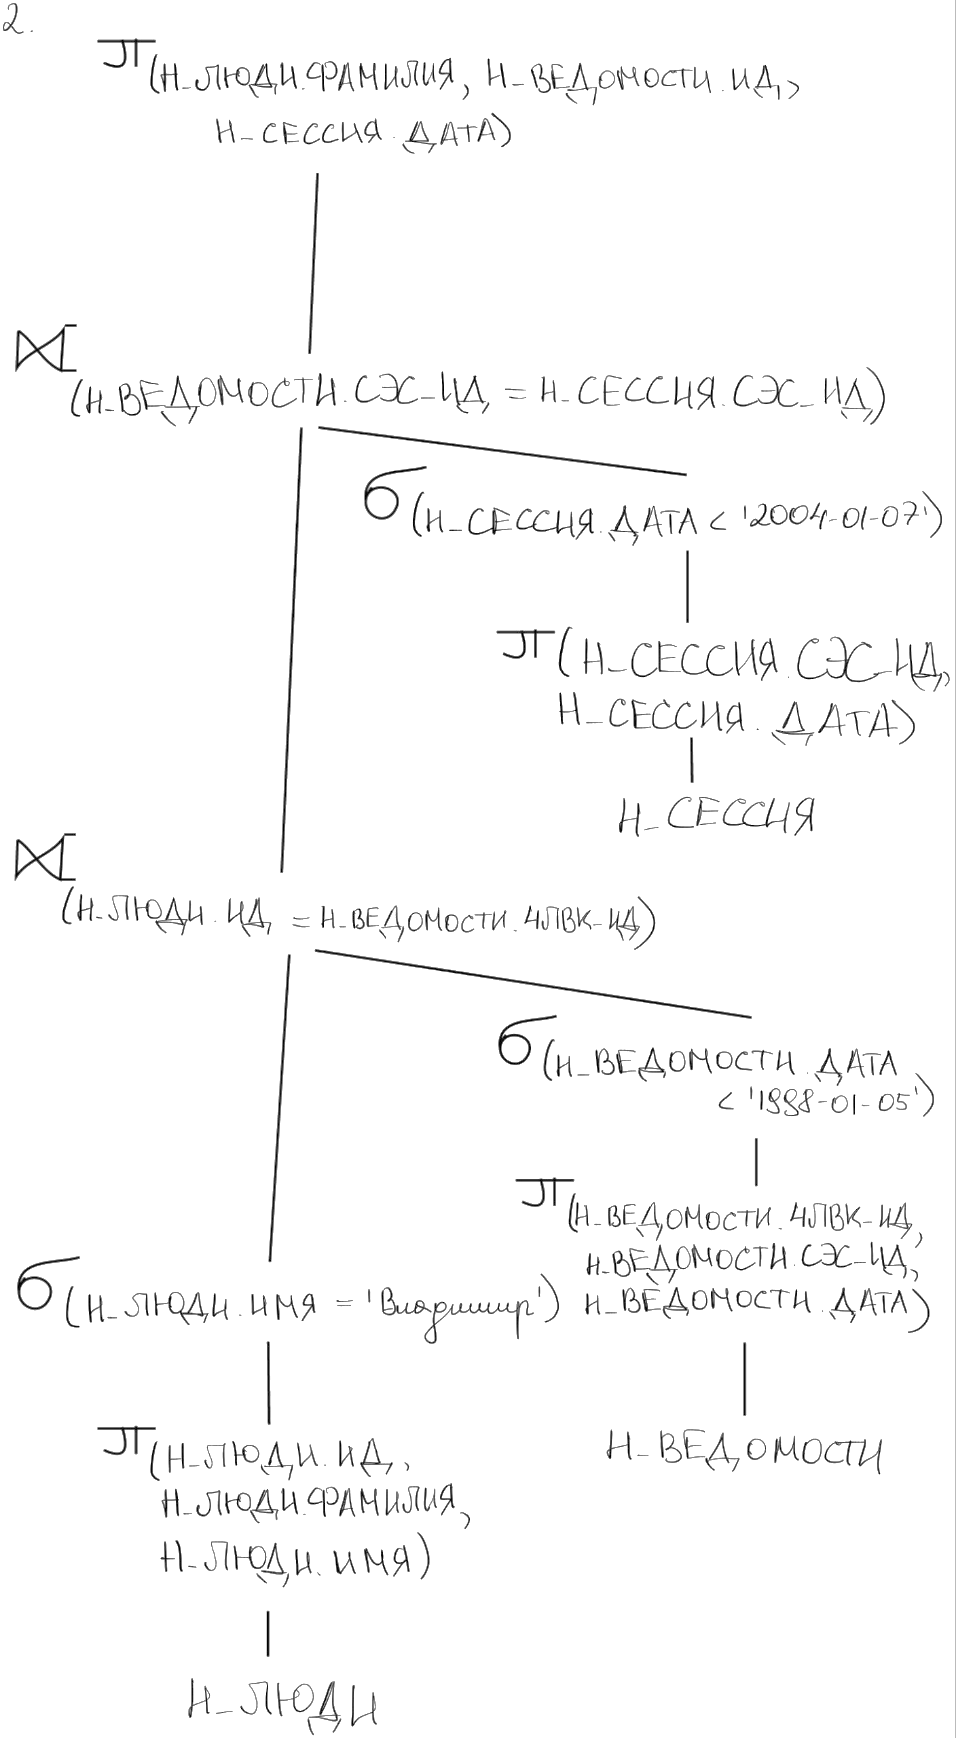 2.
π(Н_ЛЮДИ.ФАМИЛИЯ, Н_ВЕДОМОСТИ.ИД,
Н_СЕССИЯ.ДАТА)
⟕
(Н_ВЕДОМОСТИ.СЭС_ИД = Н_СЕССИЯ.СЭС_ИД)
σ(Н_СЕССИЯ.ДАТА < '2004-01-07')
π(Н_СЕССИЯ.СЭС_ИД,
Н_СЕССИЯ.ДАТА)
Н_СЕССИЯ
⟕
(Н_ЛЮДИ.ИД = Н_ВЕДОМОСТИ.ЧЛВК_ИД)
σ(Н_ВЕДОМОСТИ.ДАТА
< '1998-01-05')
π(Н_ВЕДОМОСТИ.ЧЛВК_ИД,
Н_ВЕДОМОСТИ.СЭС_ИД,
Н_ВЕДОМОСТИ.ДАТА)
Н_ВЕДОМОСТИ
σ(Н_ЛЮДИ.ИМЯ = 'Владимир')
π(Н_ЛЮДИ.ИД,
Н_ЛЮДИ.ФАМИЛИЯ,
Н_ЛЮДИ.ИМЯ)
Н_ЛЮДИ